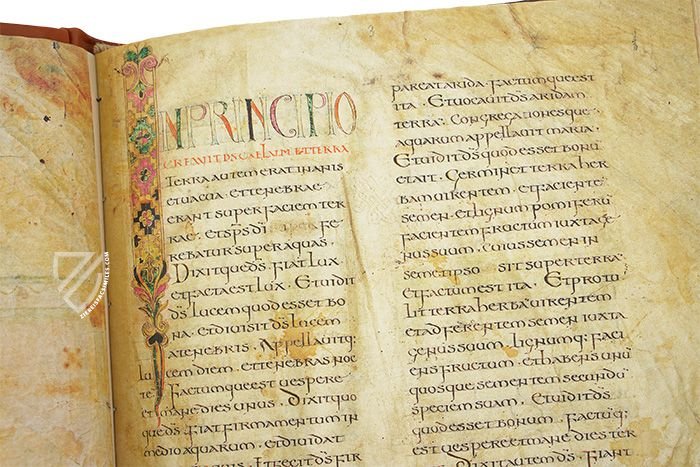 IN PRINCIPIO
CREAVIT DS CAELUM ET TERRA
Terra autem erat inanis
et vacua · et tenebrae
erant super faciem ter
rae · et sps di fe
rebatur super aquas ·
Dixitque ds · fiat lux
et facta est lux · Et vidit
ds lucem quod esset bo
na · et divisit ds lucem
a tenebris · Appellavitq;
lucem diem · et tenebras noc
te · Factumque est vespere
et mane dies unus · Dixit
que ds · fiat firmamentum in
medio aquarum · et dividat
pareat arida · Factumque est
ita · Et vocavit ds aridam
terra · Congregationesque
aquarum appellavit maria ·
Et vidit ds quod esset bonu
et ait · Germinet terra her
bam virentem · et faciente
semen · et lignum pomiferu
faciens fructum iuxta ge
nus suum · Cuius semen in
semetipso · sit super terra
et factum est ita · Et protu
lit terra herba virentem
et adferentem semen iuxta
genus suum · Lignumq; faci
ens fructum · et habens unu
quodque sementem secundu
speciem suam · Et vidit ds
quod esset bonum · Factuq;
est vespere et mane dies ter
ds · Fiant
ZIEREIS FACSIMILES.COM